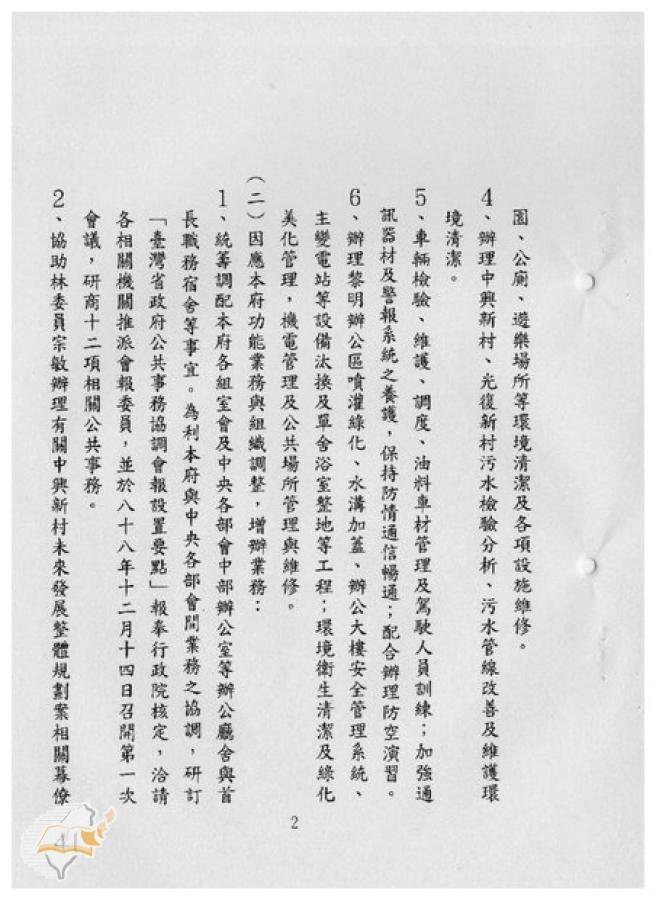 園、公廁、遊樂場所等環境清潔及各項設施維修。
4、辦理中興新村、光復新村污水檢驗分析、污水管線改善及維護環
境清潔。
5、車輛檢驗、維護、調度、油料車材管理及駕駛人員訓練；加強通
訊器材及警報系統之養護，保持防情通信暢通；配合辦理防空演習。
6、辦理黎明辦公區噴灌綠化、水溝加蓋、辦公大樓安全管理系統、
主變電站等設備汰換及單舍浴室整地等工程；環境衛生清潔及綠化
美化管理，機電管理及公共場所管理與維修。
(二)因應本府功能業務與組織調整，增辦業務：
1、統籌調配本府各組室會及中央各部會中部辦公室等辦公廳舍與首
長職務宿舍等事宜。為利本府與中央各部會間業務之協調，研訂
「臺灣省政府公共事務協調會報設置要點」報奉行政院核定，洽請
各相關機關推派會報委員，並於八十八年十二月十四日召開第一次
會議，研商十二項相關公共事務。
2、協助林委員宗敏辦理有關中興新村未來發展整體規劃案相關幕僚
2
41